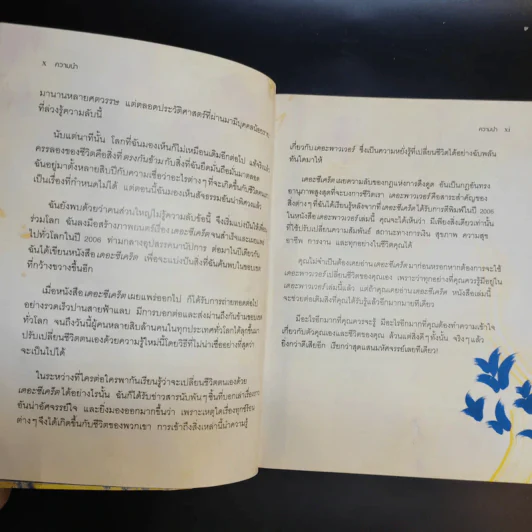 x ความนำ
มานานหลายศตวรรษ แต่ตลอดประวัติศาสตร์ที่ผ่านมามีบุคคล
ที่ล่วงรู้ความลับนี้
นับแต่นาทีนั้น โลกที่ฉันมองเห็นก็ไม่เหมือนเดิมอีกต่อไป
ครรลองของชีวิตคือสิ่งที่ตรงกันข้ามกับสิ่งที่ฉันยึดมั่นถือมั่นมาตลอด
ฉันอยู่มาตั้งหลายสิบปีกับความเชื่อว่าอะไรต่างๆ ที่จะเกิดขึ้นกับชีวิต
เป็นเรื่องที่กำหนดไม่ได้ แต่ตอนนี้ฉันมองเห็นสัจธรรมอันน่าอัศจรรย์
ฉันยังพบด้วยว่าคนส่วนใหญ่ไม่รู้ความลับข้อนี้ จึงเริ่มแบ่งปันให้เพื่อน
ร่วมโลก ฉันลงมือสร้างภาพยนตร์เรื่องเดอะซีเคร็ตจนสำเร็จและเผยแพร่
ไปทั่วโลกในปี 2006 ท่ามกลางอุปสรรคนานัปการ ต่อมาในปีเดียวกัน
ฉันได้เขียนหนังสือเดอะซีเคร็ต เพื่อจะแบ่งปันสิ่งที่ฉันค้นพบในขอบเขต
ที่กว้างขวางขึ้นอีก
เมื่อหนังสือเดอะซีเคร็ตเผยแพร่ออกไป ก็ได้รับการถ่ายทอดต่อไป
อย่างรวดเร็วปานสายฟ้าแลบ มีการบอกต่อและส่งผ่านถึงกันข้ามขอบเขต
ทั่วโลก จนถึงวันนี้ผู้คนหลายสิบล้านคนในทุกประเทศทั่วโลกได้ลุกขึ้นมา
ปรับเปลี่ยนชีวิตตนเองด้วยความรู้ใหม่นี้โดยวิธีที่ไม่น่าเชื่ออย่างที่สุดว่า
จะเป็นไปได้
ในระหว่างที่ใครต่อใครพากันเรียนรู้ว่าจะเปลี่ยนชีวิตตนเองด้วย
เดอะซีเคร็ตได้อย่างไรนั้น ฉันก็ได้รับข่าวสารนับพันๆ ชิ้นที่บอกเล่าเรื่องราว
อันน่าอัศจรรย์ใจ และยิ่งมองออกมากขึ้นว่า เพราะเหตุใดเรื่องทุกข์ร้อน
ต่างๆ จึงได้เกิดขึ้นกับชีวิตของพวกเขา การเข้าถึงสิ่งเหล่านี้นำความรู้
ความนำ xi
เกี่ยวกับเดอะพาวเวอร์ ซึ่งเป็นความหยั่งรู้ที่เปลี่ยนชีวิตได้อย่างฉับพลัน
ทันใดมาให้
เดอะซีเคร็ตเผยความลับของกฎแห่งการดึงดูด อันเป็นกฎอันทรง
อานุภาพสูงสุดที่จะบงการชีวิตเรา เดอะพาวเวอร์คือสาระสำคัญของ
สิ่งต่างๆ ที่ฉันได้เรียนรู้หลังจากที่เดอะซีเคร็ตได้รับการตีพิมพ์ในปี 2006
ในหนังสือเดอะพาวเวอร์เล่มนี้ คุณจะได้เห็นว่า มีเพียงสิ่งเดียวเท่านั้น
ที่ใช้ปรับเปลี่ยนความสัมพันธ์ สถานะทางการเงิน สุขภาพ ความสุข
อาชีพ การงาน และทุกอย่างในชีวิตคุณได้
คุณไม่จำเป็นต้องเคยอ่านเดอะซีเคร็ตมาก่อนหรอกหากต้องการจะใช้
เดอะพาวเวอร์เปลี่ยนชีวิตของคุณเอง เพราะว่าทุกอย่างที่คุณควรรู้มีอยู่ใน
เดอะพาวเวอร์เล่มนี้แล้ว แต่ถ้าคุณเคยอ่านเดอะซีเคร็ต หนังสือเล่มนี้
จะช่วยต่อเติมสิ่งที่คุณได้รับรู้แล้วอีกมากมายทีเดียว
มีอะไรอีกมากที่คุณควรจะรู้ มีอะไรอีกมากที่คุณต้องทำความเข้าใจ
เกี่ยวกับตัวคุณเองและชีวิตของคุณ ล้วนแต่สิ่งดีๆ ทั้งนั้น จริงๆ แล้ว
ยิ่งกว่าดีเสียอีก เรียกว่าสุดแสนมหัศจรรย์เลยทีเดียว!